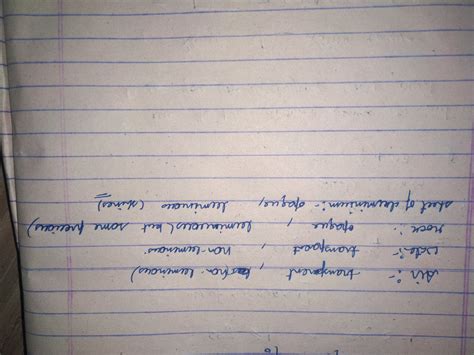 Air :- transparent , non-leuminous)
water :- transpart , non-leuminous.
rock :- opaque , leuminious( but some precious)
sheet of aleuminium :- opaque, leuminious (shines)